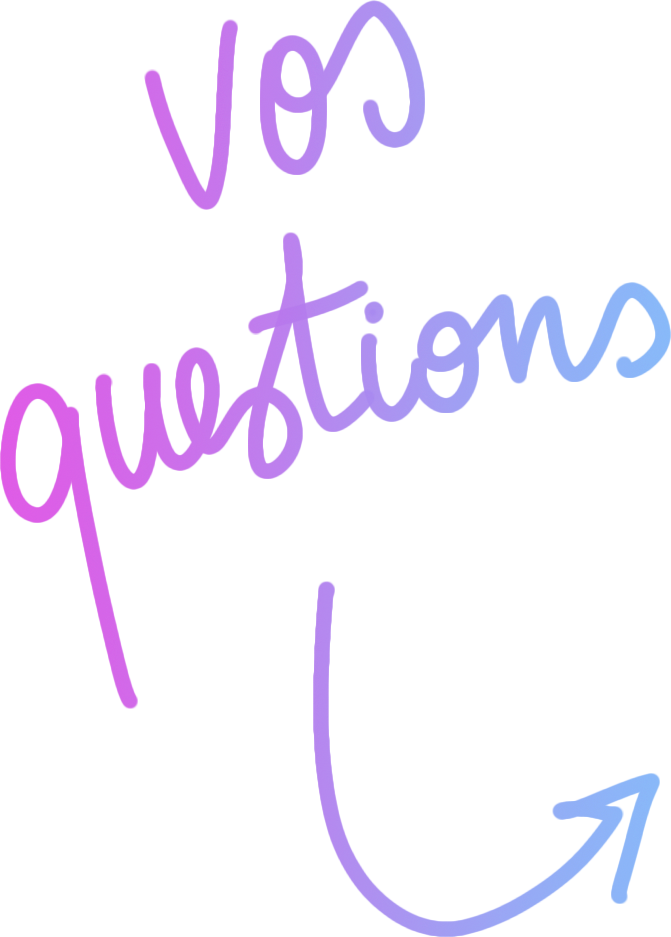 vos
questions